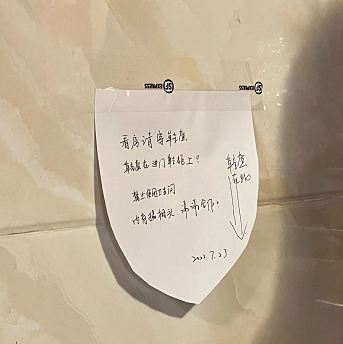 SF EXPRESS
SF EXPRESS
看房请穿鞋套
鞋套在进门鞋柜上?
禁止使用卫生间
内有摄相头,谢谢合作。
2022.7.23
鞋套
在此